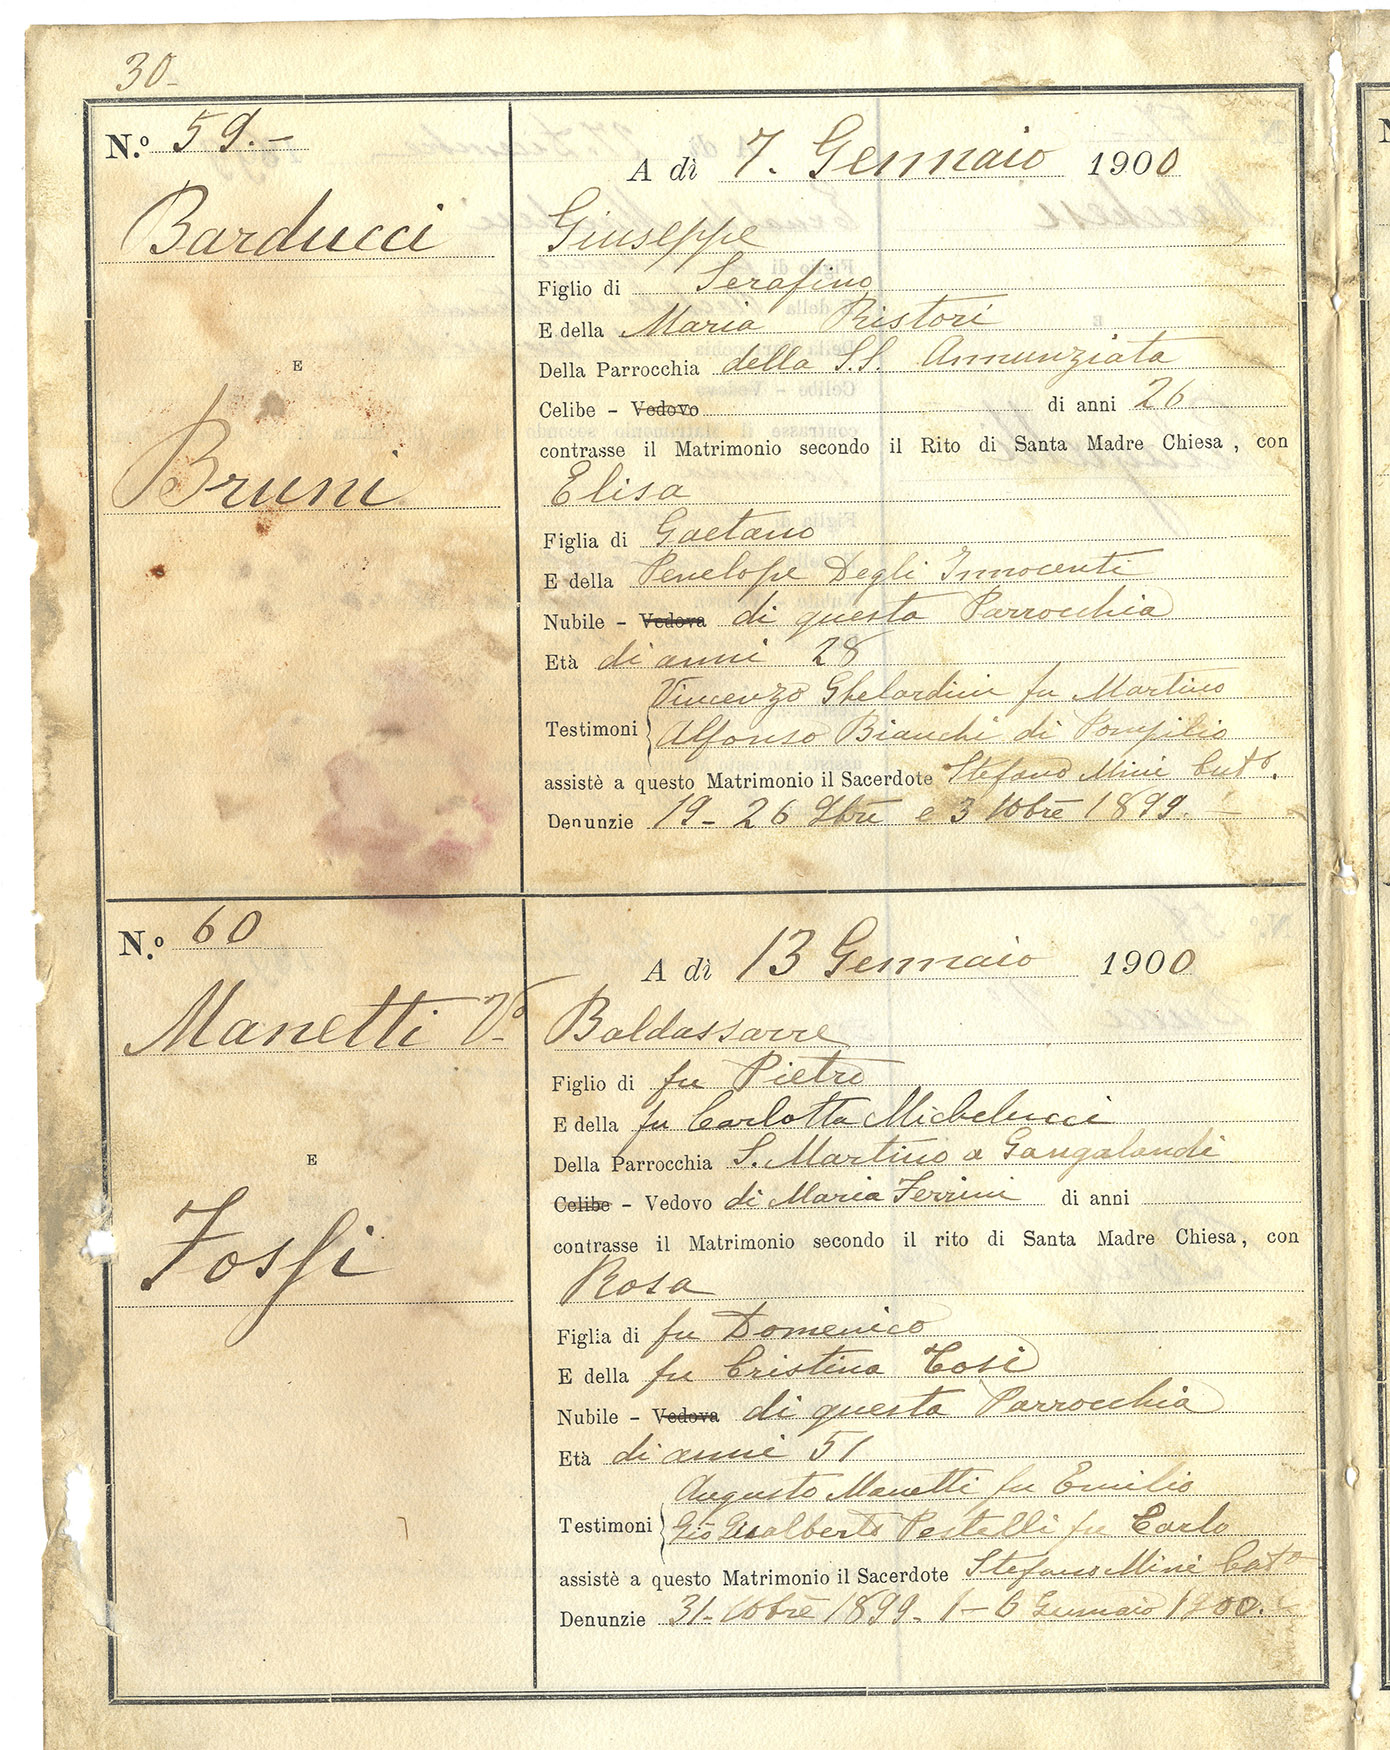 30-
N.o 59.-
A dì 7. Gennaio 1900
Barducci
Giuseppe
Figlio di Serafino
E della Maria Ristori
E
Della Parrocchia della S.S. Annunziata
Celibe - Vedovo di anni 26
contrasse il Matrimonio secondo il Rito di Santa Madre Chiesa, con
Bruni
Elisa
Figlia di Gaetano
E della Penelope Degli Innocenti
Nubile - Vedova di questa Parrocchia
Età di anni 28
Vincenzo Ghelardini fu Martino
Testimoni Alfonso Bianchi di Pompilio
assistè a questo Matrimonio il Sacerdote Stefano Mini Curto.
Denunzie 19- 26 9bre e 3 10bre 1899.
N.o 60
A dì 13 Gennaio 1900
Manetti Vo
Baldassarre
Figlio di fu Pietro
E della fu Carlotta Michelucci
E
Della Parrocchia S. Martino a Gangalandi
Celibe - Vedovo di Maria Ferrini di anni
contrasse il Matrimonio secondo il rito di Santa Madre Chiesa, con
Fossi
Rosa
Figlia di fu Domenico
E della fu Cristina Tosi
Nubile - Vedova di questa Parrocchia
Età di anni 51
Augusto Manetti fu Emilio
Testimoni Gio Gualberto Pestelli fu Carlo
assistè a questo Matrimonio il Sacerdote Stefano Mini Curto
Denunzie 31- 10bre 1899- 1-6 Gennaio 1900.